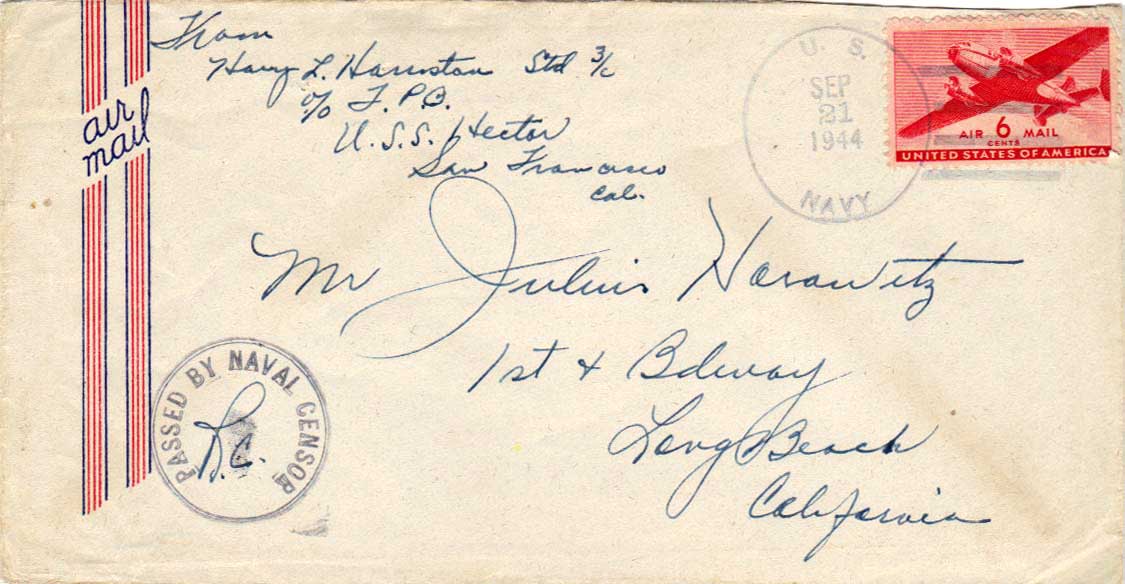 From
Harry L. Harriston Std 3/c
c/o F.P.O.
U.S.S. Hector
San Francisco
Cal.
air
mail
U. S.
SEP
21
1944
NAVY
AIR 6 MAIL
CENTS
UNITED STATES OF AMERICA
Mr Julius Horowitz
1st + Bdway
Long Beach
California
PASSED BY NAVAL CENSOR
R.C.